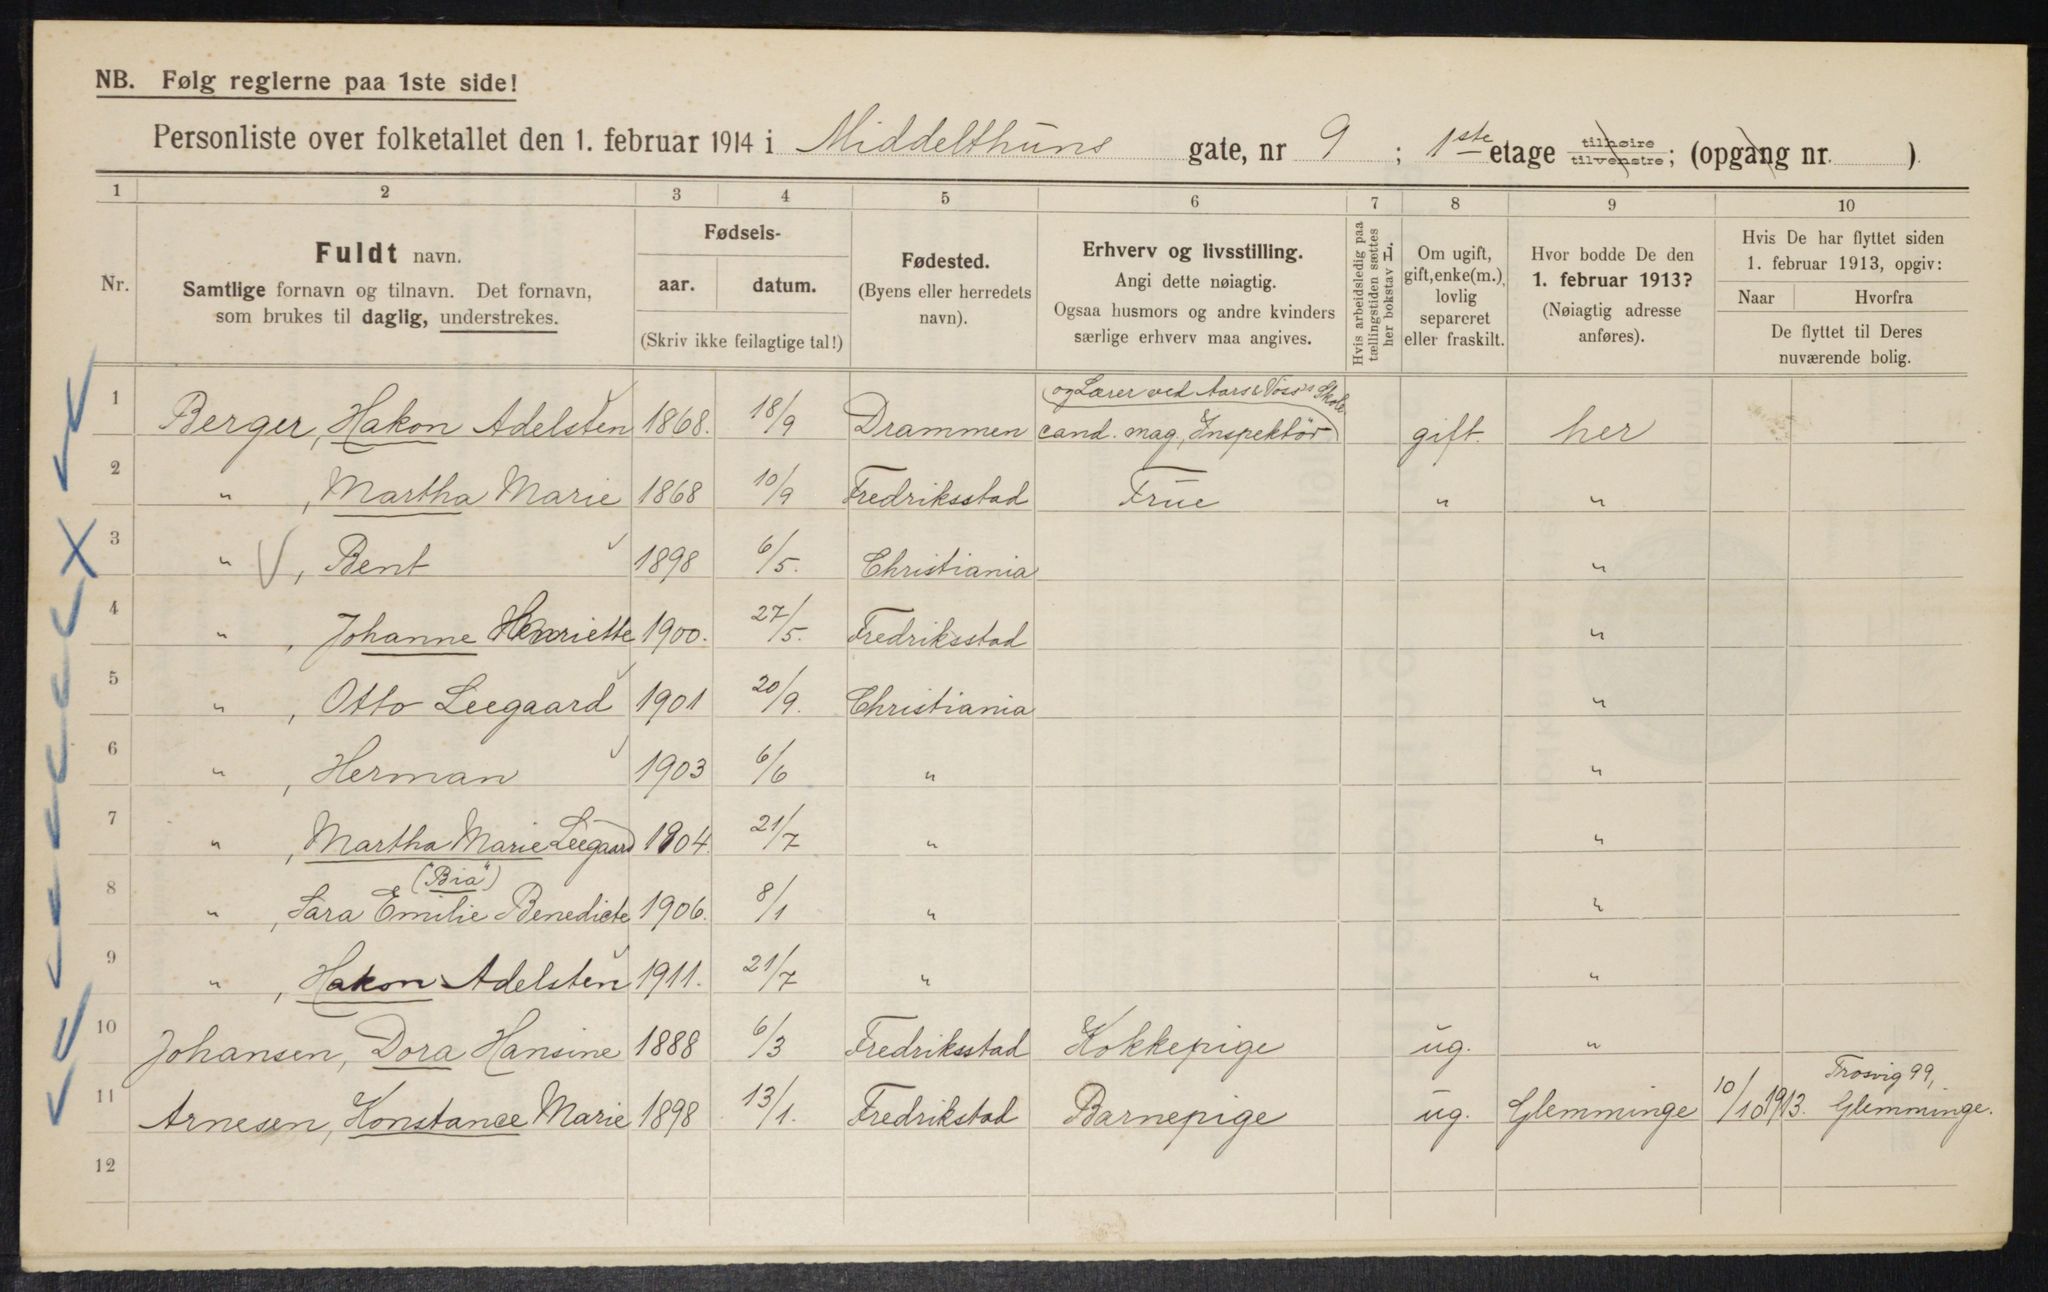 NB. Følg reglerne paa 1ste side!
Personliste over folketallet den 1. februar 1914 i Middelthuns gate, nr 9 ; 1ste etage tilhøire tilvenstre; (opgang nr. ).
1 2 3 4 5 6 7 8 9 10
Nr.
Fuldt navn.
Samtlige fornavn og tilnavn. Det fornavn,
som brukes til daglig, understrekes.
Fødsels-
aar. datum.
(Skriv ikke feilagtige tal!)
Fødested.
(Byens eller herredets
navn).
Erhverv og livsstilling.
Angi dette nøiagtig.
Ogsaa husmors og andre kvinders
særlige erhverv maa angives.
Hvis arbeidsledig paa
tællingstiden sættes
her bokstav L.
Om ugift,
gift, enke(m.),
lovlig
separeret
eller fraskilt.
Hvor bodde De den
1. februar 1913?
(Nøiagtig adresse
anføres).
Hvis De har flyttet siden
1. februar 1913, opgiv:
Naar Hvorfra
De flyttet til Deres
nuværende bolig.
og Lærer ved Aars & Voss's Skole
1 Berger, Hakon Adelsten 1868. 18/9 Drammen cand. mag., Inspektör gift. her
2 " , Martha Marie 1868 10/9 Fredriksstad Frue " "
3 " , Bent 1898 6/5. Christiania "
4 " , Johanne Henriette 1900. 27/5. Fredriksstad "
5 " , Otto Leegaard 1901 20/9. Christiania "
6 " , Herman 1903 6/6 " "
7 " , Martha Marie Leegaard 1904. 21/7 " "
("Bia")
8 " , Sara Emilie Benedicte 1906. 8/1 " "
9 " , Hakon Adelsten 1911. 21/7 " "
10 Johansen, Dora Hansine 1888 6/3 Fredriksstad Kokkepige ug. "
11 Arnesen, Konstance Marie 1898 13/1. Fredrikstad Barnepige ug. Glemminge 10/10 1913. Trosvig 99, Glemminge.
12